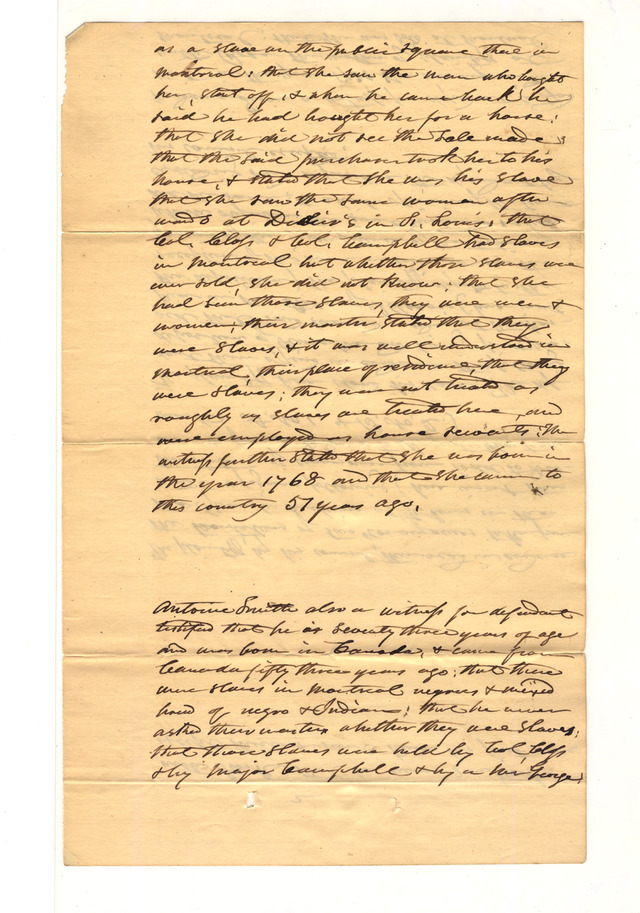 as a slave on the public square there in
Montreal: that she saw the man who bought
her, start off, & when he came back he
said he had bought her for a horse;
that she did not see the sale made;
that the said purchaser took her to his
house, & stated that she was his slave
that she saw the same woman after
wards at Didier's in St. Louis: that
Col. Closs & Col. Campbell had slaves
in Montreal but whether those slaves were
ever sold, she did not know; that she
had seen those slaves, they were men &
women; their master stated that they
were slaves, & it was well understood in
Montreal, their place of residence, that they
were slaves; they were not treated as
roughly as slaves are treated here, and
were employed as house servants. The
witness further stated that she was born in
the year 1768 and that she came to
this country 51 years ago.
Antoine Smith also a witness for defendant
testified that he is seventy three years of age
and was born in Canada, & came from
Canada fifty three years ago; that there
were slaves in Montreal negroes & mixed
breed of negro & Indian; that he never
asked their masters whether they were slaves;
that those slaves were held by Col. Closs
& by Major Campbell & by a Mr George;